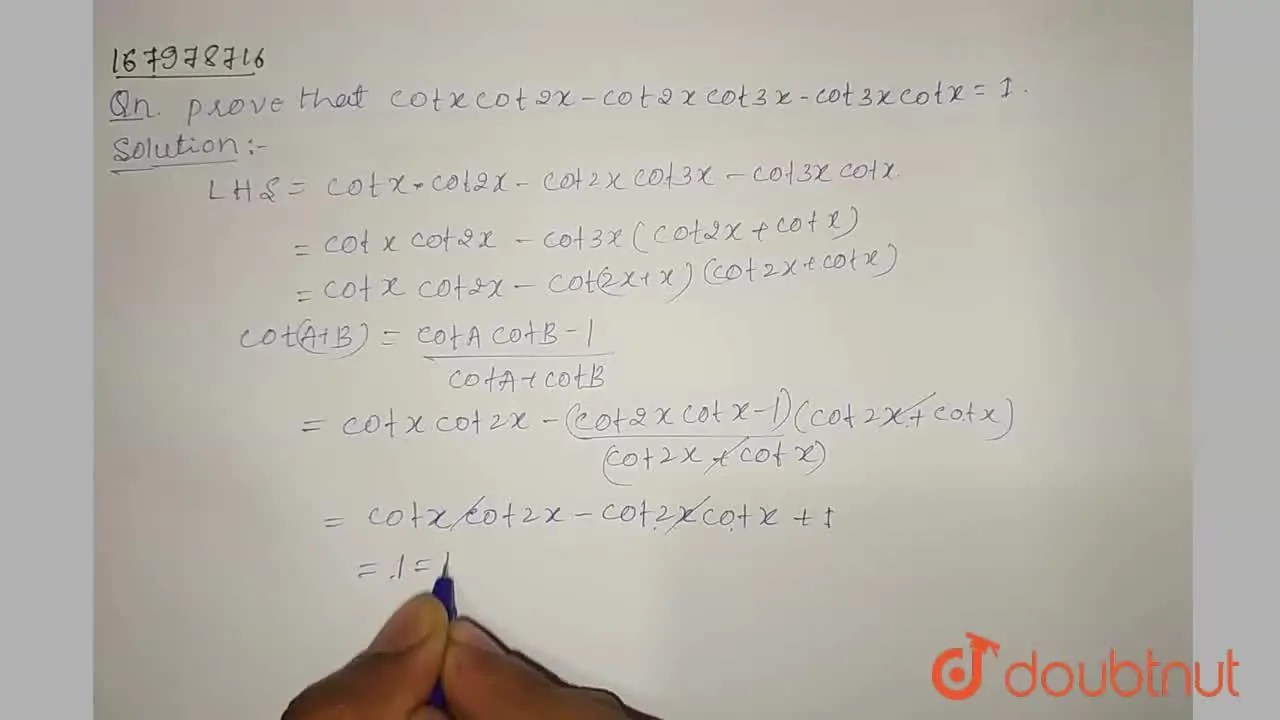 167978716
Qn. prove that cotx cot2x - cot2x cot3x - cot3x cotx = 1.
Solution :-
LHS = cotx · cot2x - cot2x cot3x - cot3x cotx.
= cotx cot2x - cot3x (cot2x + cotx)
= cotx cot2x - cot(2x+x) (cot2x + cotx)
cot(A+B) = cotA cotB - 1
cotA + cotB
= cotx cot2x - (cot2x cotx - 1) (cot2x + cotx)
(cot2x + cotx)
= cotx cot2x - cot2x cotx + 1
= 1 =
doubtnut